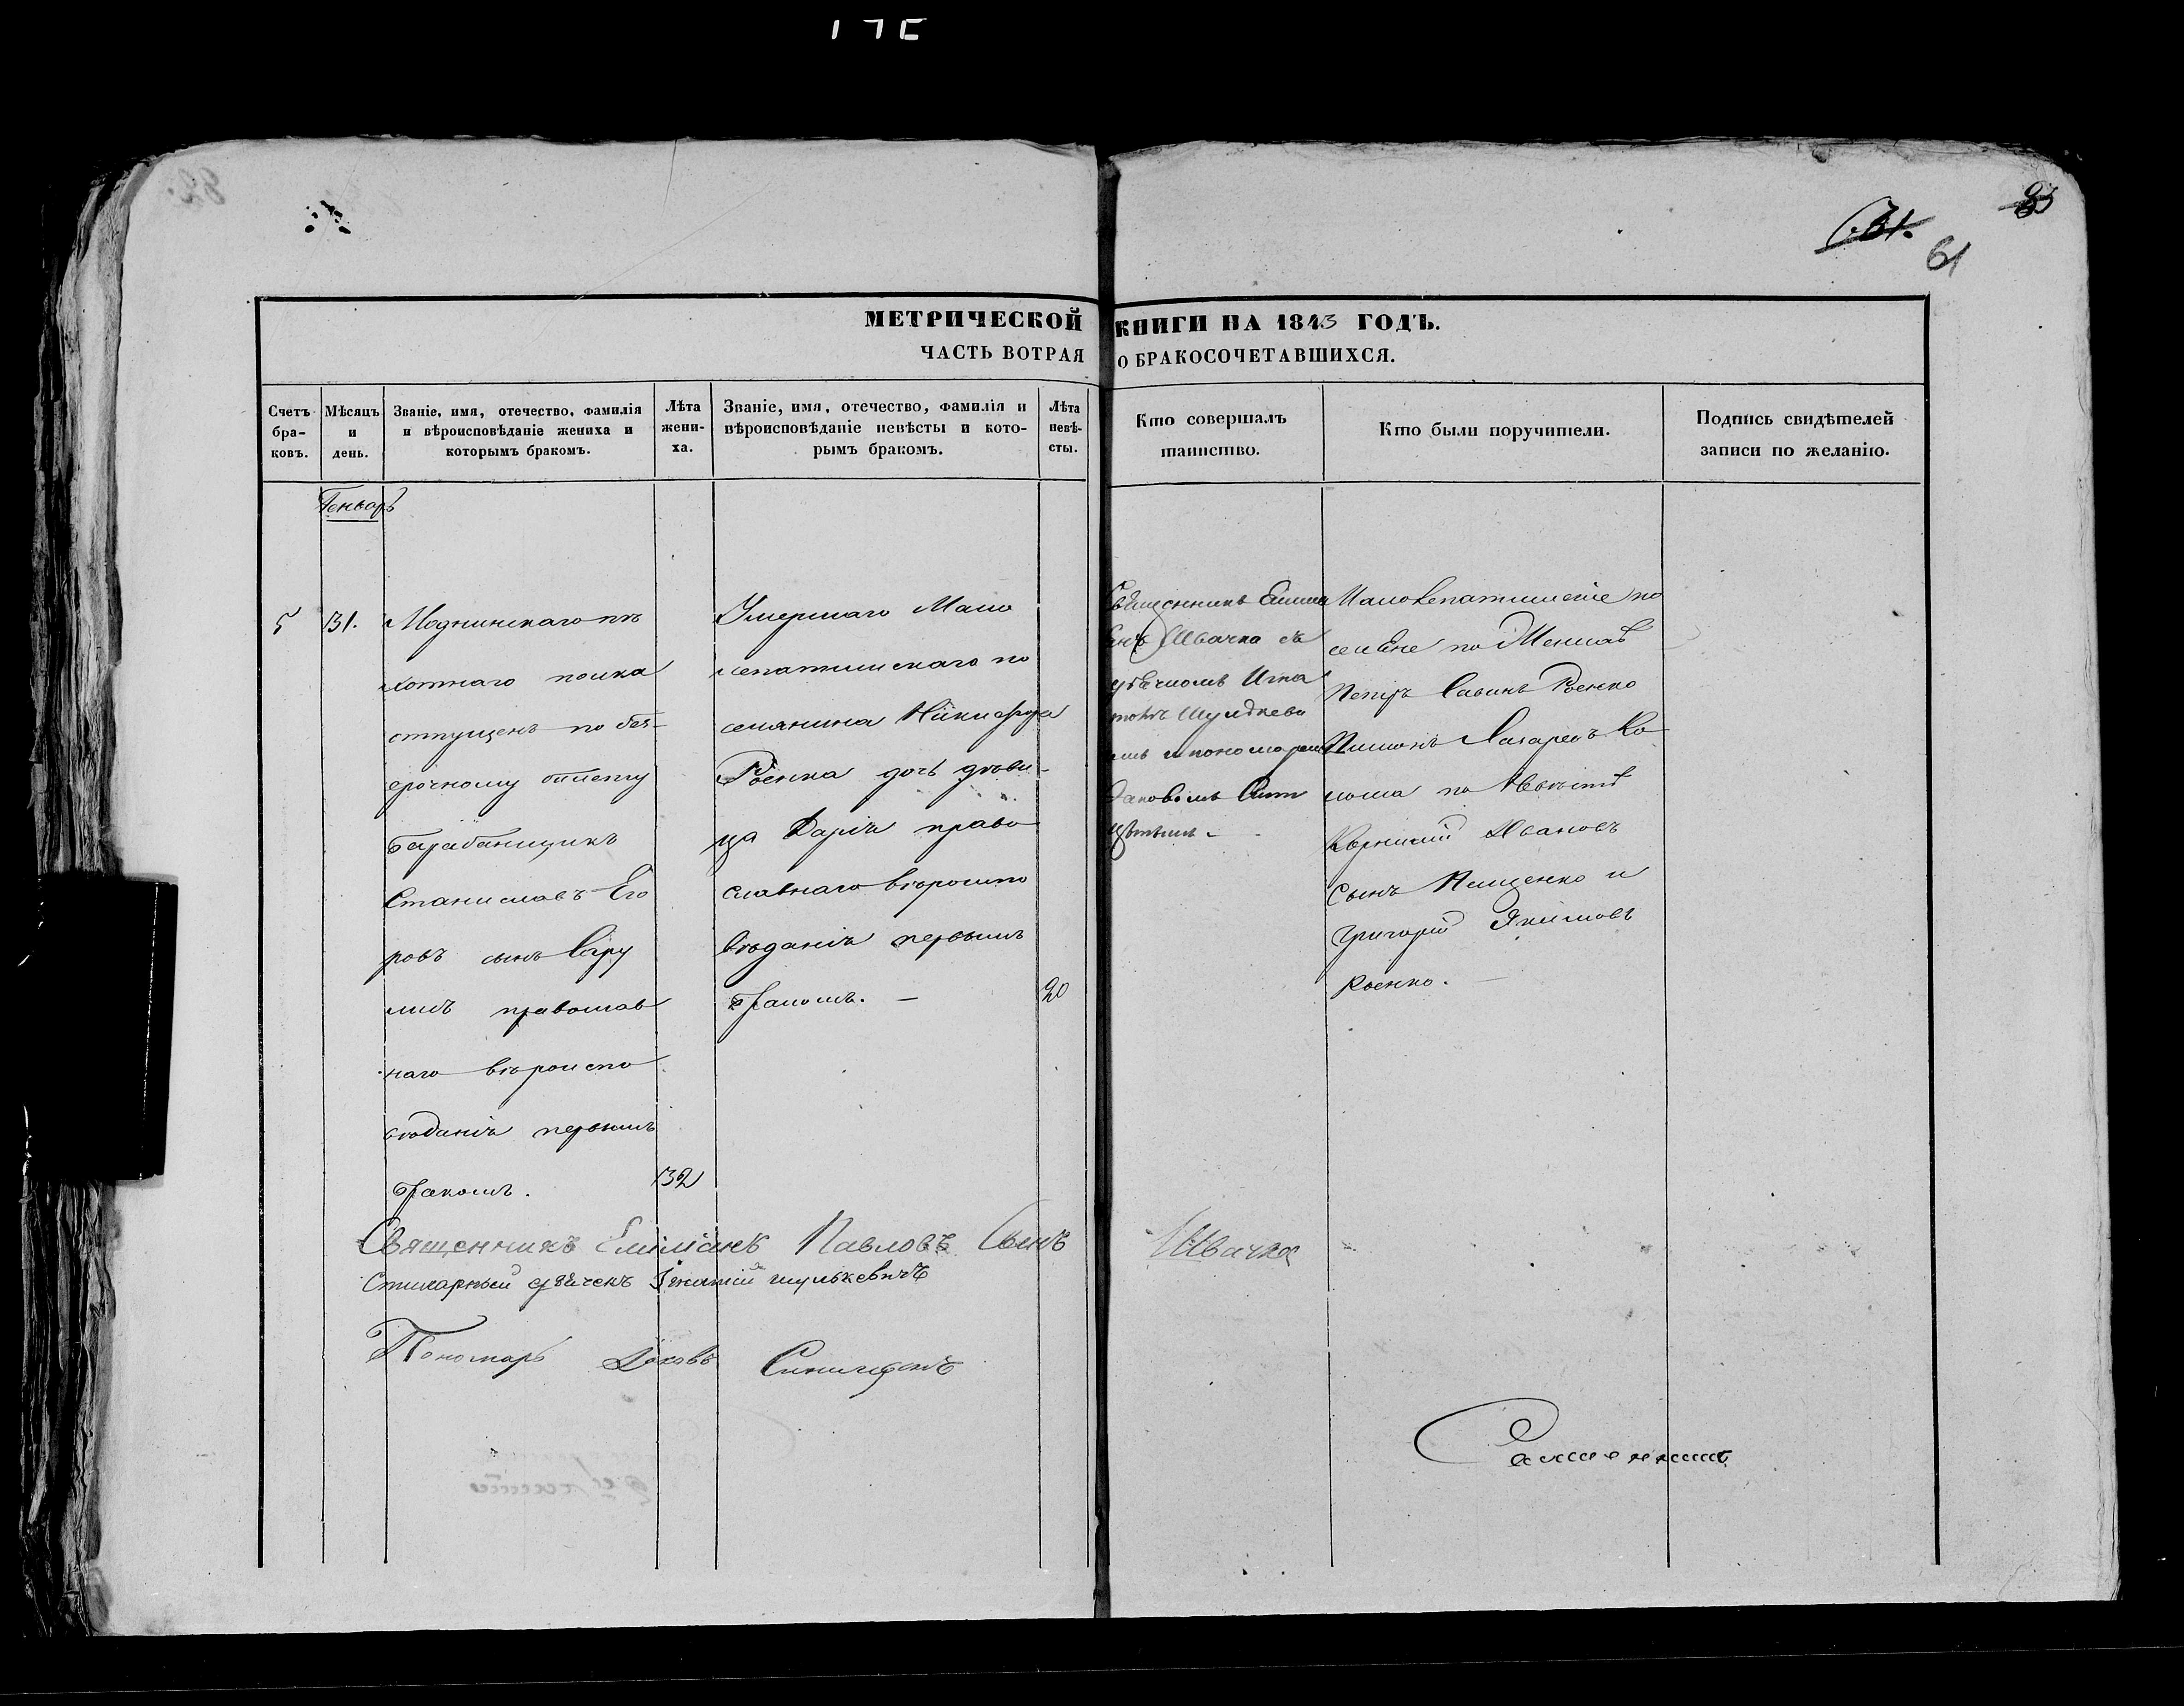 83
61
МЕТРИЧЕСКОЙ КНИГИ НА 1843 ГОДЪ.
ЧАСТЬ ВОТРАЯ О БРАКОСОЧЕТАВШИХСЯ.
Счетъ бра-ковъ.
Мѣсяцъ и день.
Званіе, имя, отечество, фамилія и вѣроисповѣданіе жениха и которымъ бракомъ.
Лѣта жени-ха.
Званіе, имя, отечество, фамилія и вѣроисповѣданіе невѣсты и кото-рымъ бракомъ.
Лѣта невѣ-сты.
Кто совершалъ таинство.
Кто были поручители.
Подпись свидѣтелей записи по желанію.
Генварь
5
31.
Модлинскаго пѣ
хотнаго полка
отпущенъ по без-
срочному билету
барабанщикъ
Станиславъ Его
ровъ сынъ
православ
наго вѣроиспо
вѣданія первымъ
бракомъ.
32
Умершаго Мало
селянина Никифора
Роенка дочь дѣви-
ца Дарія право
славнаго вѣроиспо
вѣданія первымъ
бракомъ. —
20
Священникъ Емилі
анъ Швачка съ
Игна
тіемъ Шулькеви
чемъ и пономаремъ
Яковомъ
по
селяне по Женихѣ
Петръ Савинъ Роенко
Лазаревъ Ко
по Невѣстѣ
Корнилій Ивановъ
сынъ Ищенко и
Григорій Якимовъ
Роенко. —
Священникъ Емиліанъ Павловъ Сынъ Швачка
Стихарный дьячекъ Ігнатій Шулькевичъ
Пономарь Яковъ